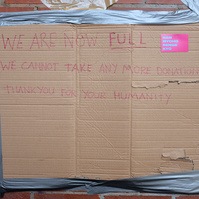 WE ARE NOW FULL
WE CANNOT TAKE ANY MORE DONATIONS
THANKYOU FOR YOUR HUMANITY